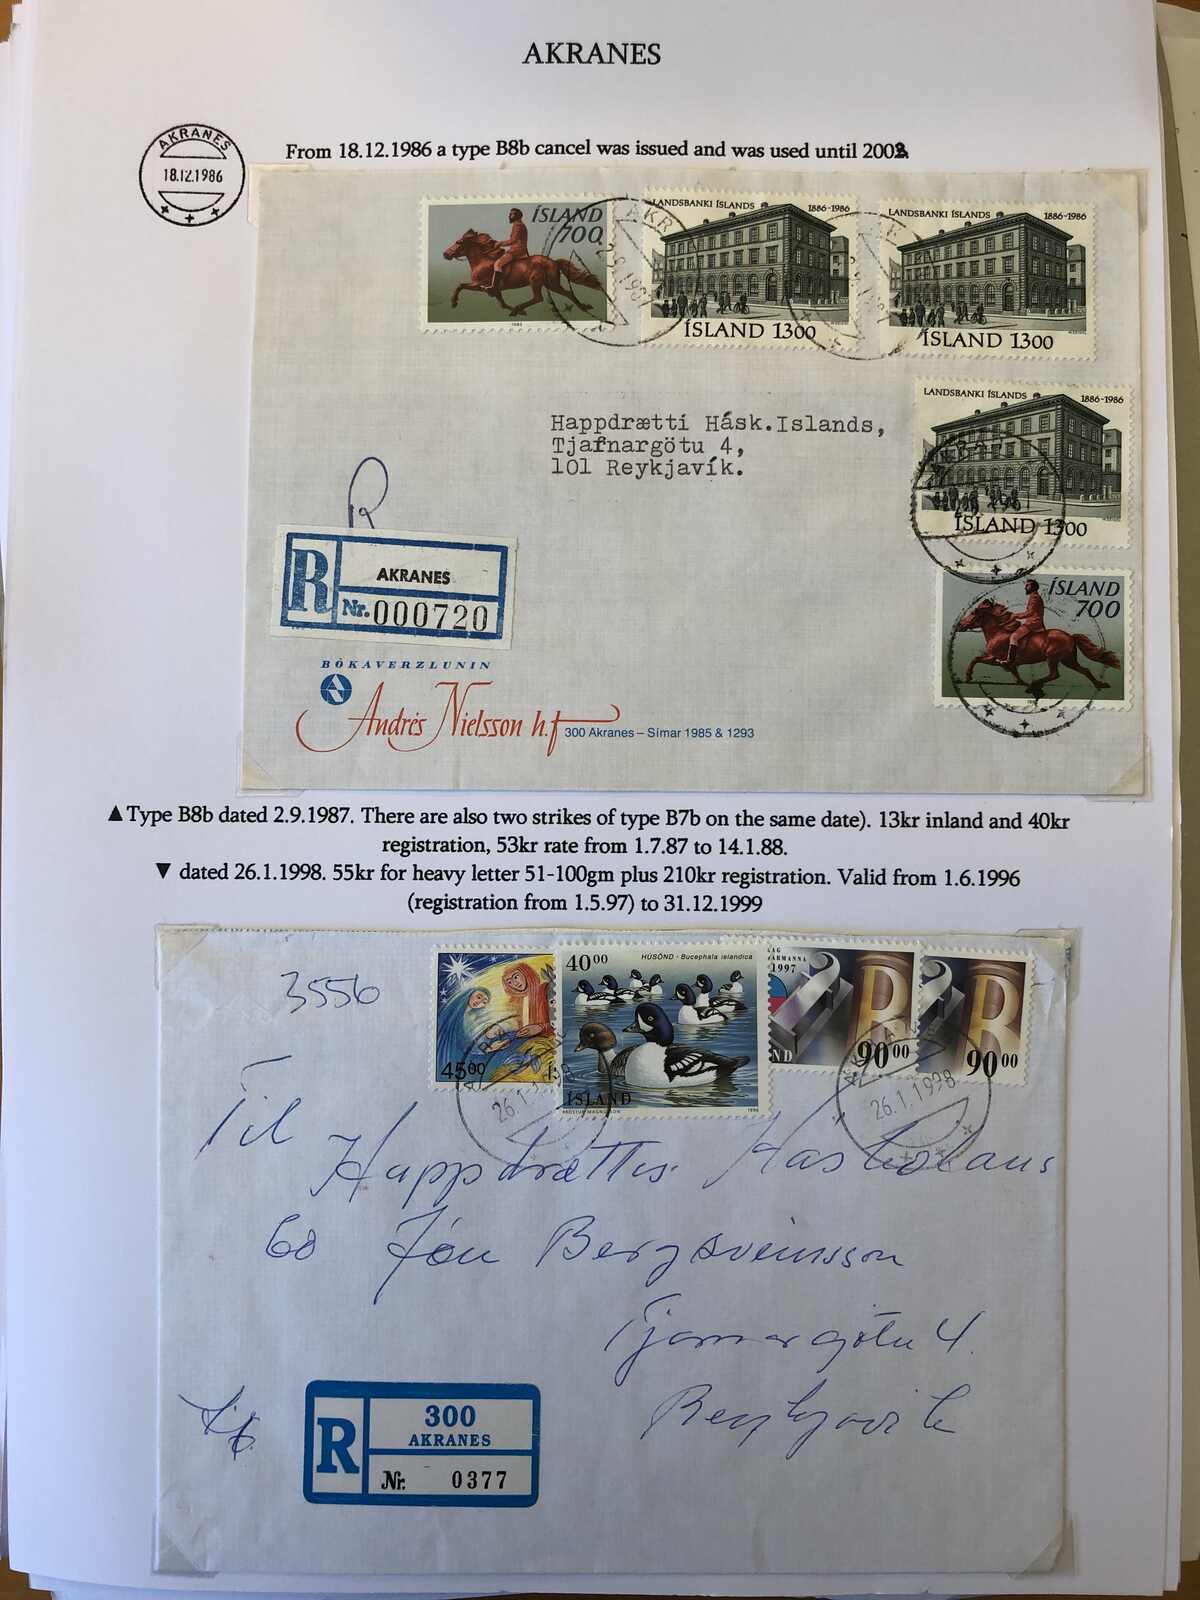 AKRANES
AKRANES
18.12.1986
From 18.12.1986 a type B8b cancel was issued and was used until 2003.
ÍSLAND
700
LANDSBANKI ÍSLANDS 1886-1986
ÍSLAND 1300
LANDSBANKI ÍSLANDS 1886-1986
ÍSLAND 1300
LANDSBANKI ÍSLANDS 1886-1986
ÍSLAND 1300
ÍSLAND
700
Happdrætti Hásk.Islands,
Tjarnargötu 4,
101 Reykjavík.
R
R AKRANES
Nr. 000720
BÓKAVERZLUNIN
Andrés Nielsson h.f 300 Akranes – Símar 1985 & 1293
▲Type B8b dated 2.9.1987. There are also two strikes of type B7b on the same date). 13kr inland and 40kr
registration, 53kr rate from 1.7.87 to 14.1.88.
▼ dated 26.1.1998. 55kr for heavy letter 51-100gm plus 210kr registration. Valid from 1.6.1996
(registration from 1.5.97) to 31.12.1999
3556
4500
4000 HÚSÖND - Bucephala islandica
ÍSLAND
1997
9000
9000
26.1.1998
26.1.1998
Til
Happdrættis Háskólans
60 Jón Bergsveinsson
Tjarnargötu 4.
Reykjavík
R 300
AKRANES
Nr. 0377